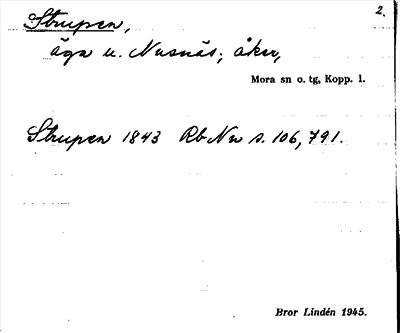 2.
Strupen,
äga u. Nusnäs; åker,
Mora sn o. tg, Kopp. l.
Strupen 1843 Rb Nu s. 106, 791.
Bror Lindén 1945.